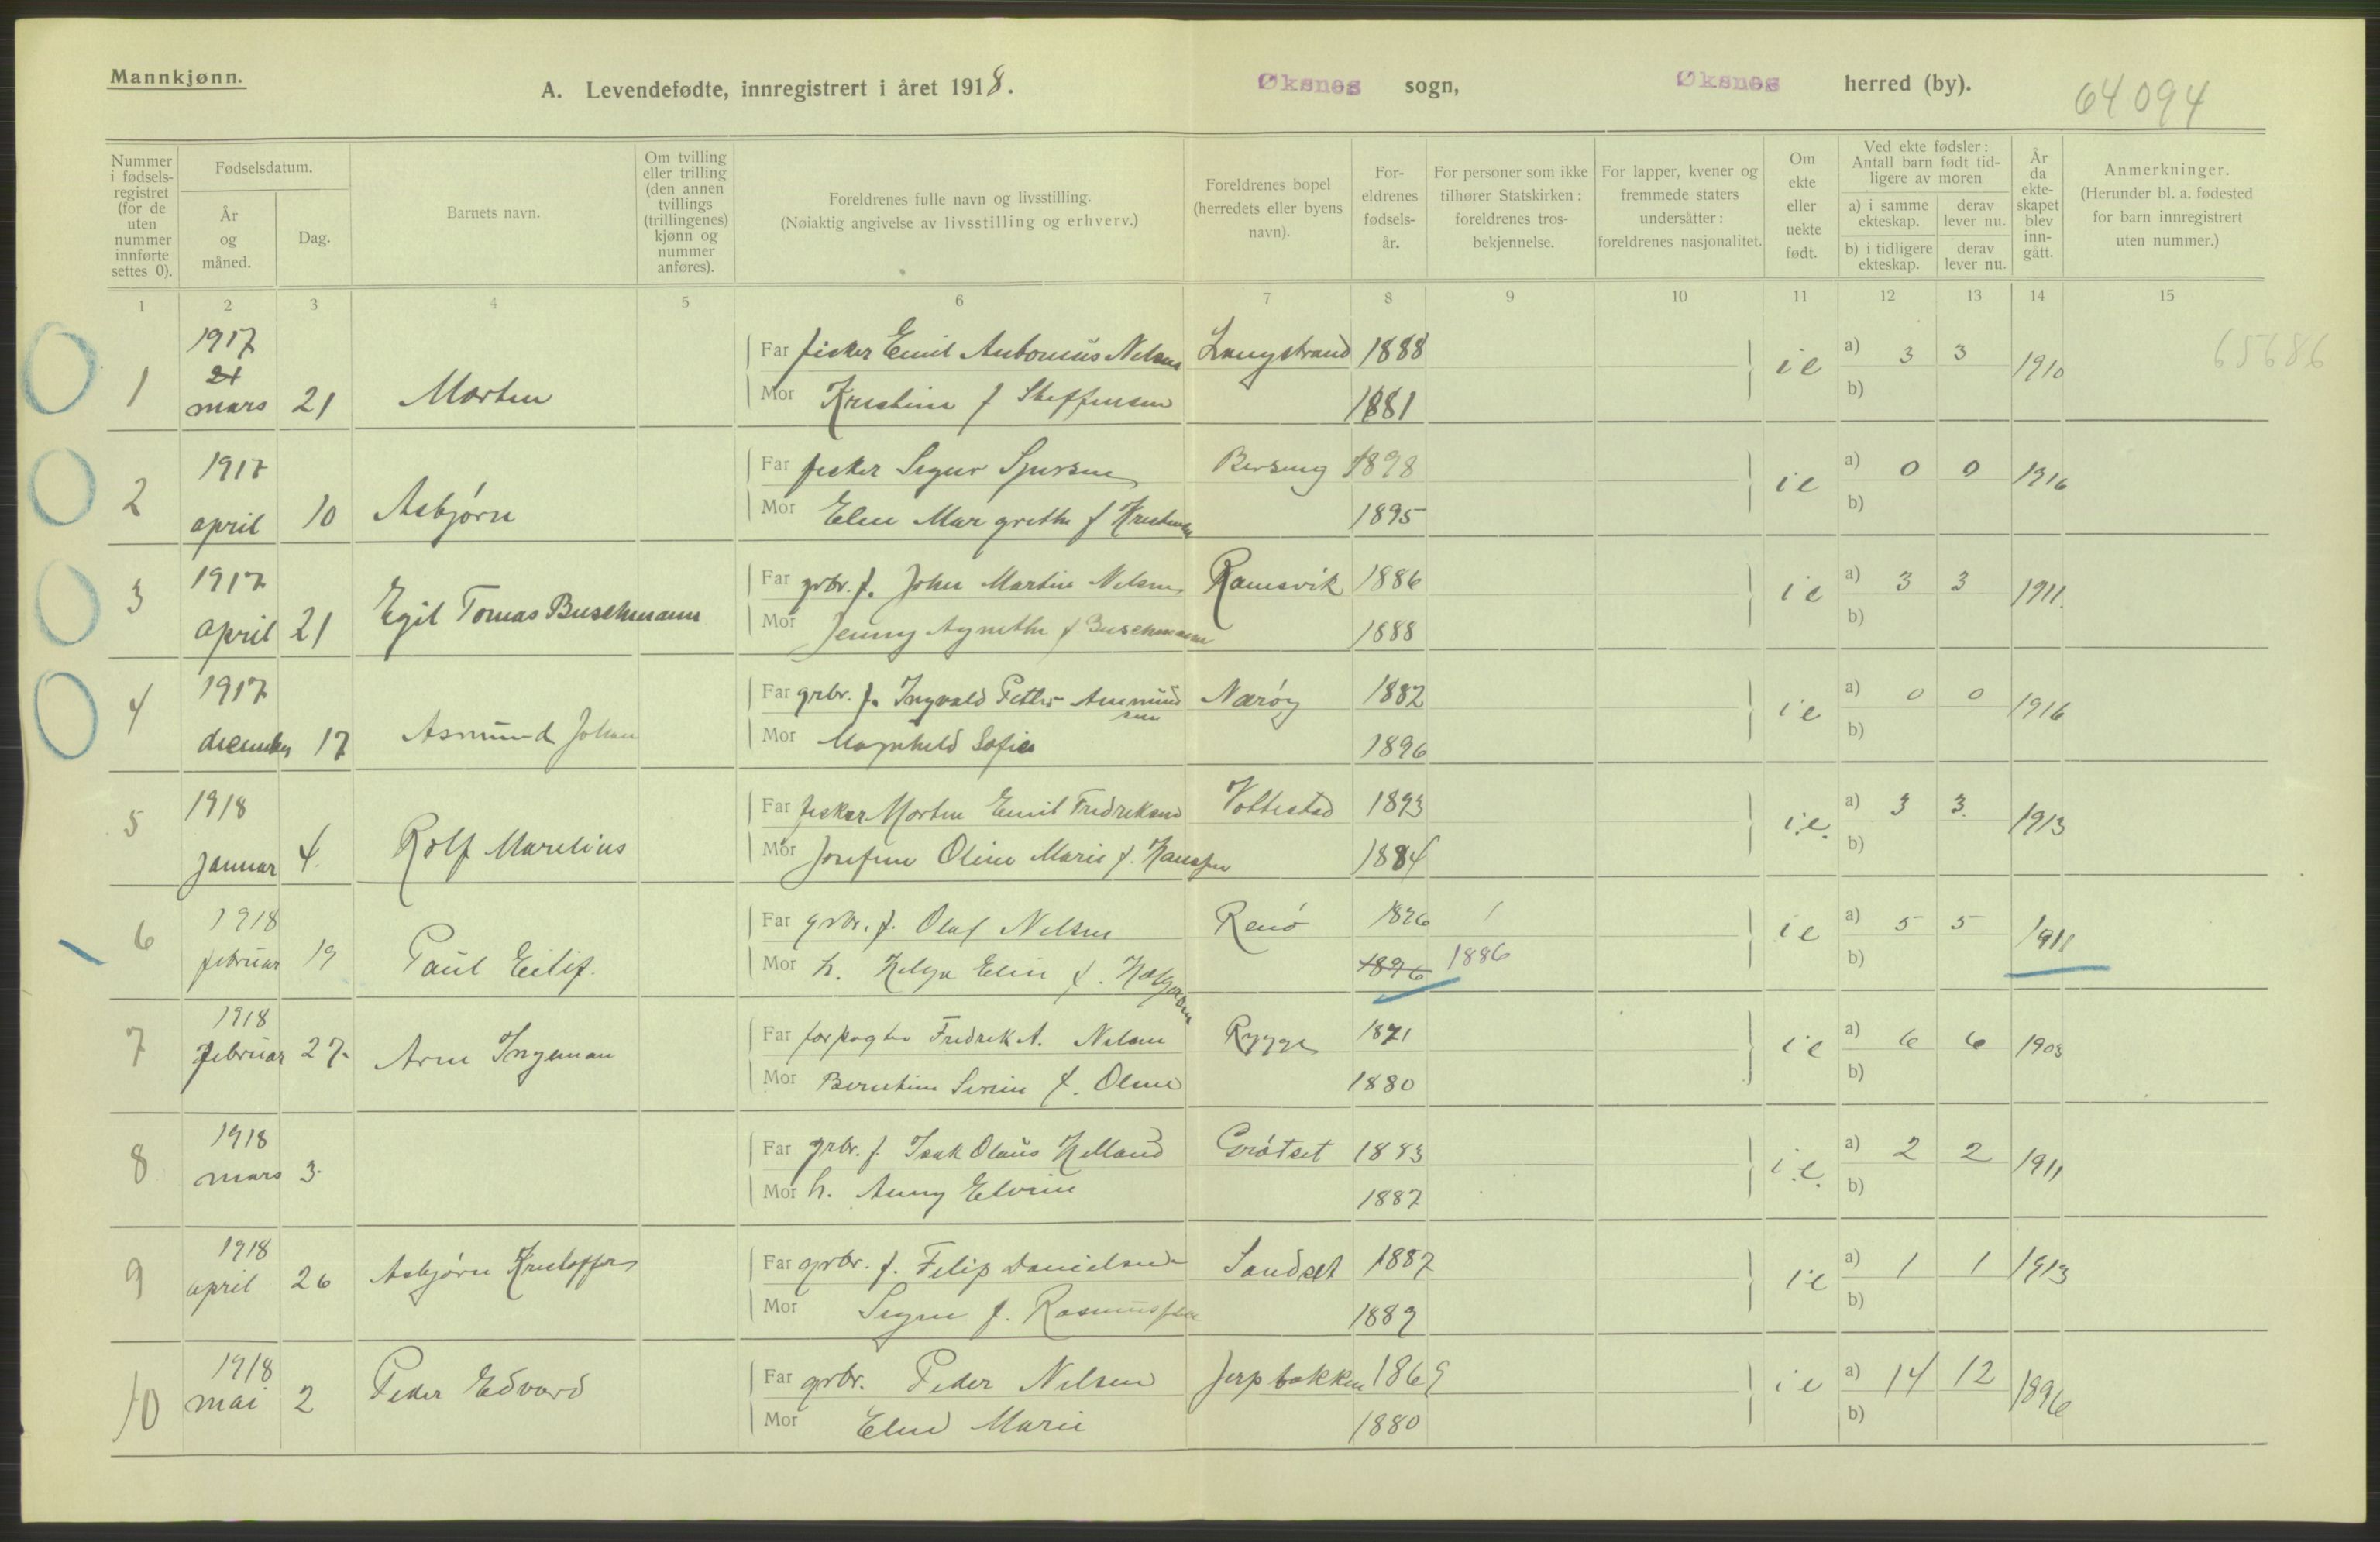 Mannkjønn.
A. Levendefødte, innregistrert i året 1918.
Øksnes sogn,
Øksnes herred (by).
64 094
Nummer i fødsels-registret (for de uten nummer innførte settes 0).
Fødselsdatum.
År og måned.
Dag.
Barnets navn.
Om tvilling eller trilling (den annen tvillings (trillingenes) kjønn og nummer anføres).
Foreldrenes fulle navn og livsstilling.
(Nøiaktig angivelse av livsstilling og erhverv.)
Foreldrenes bopel (herredets eller byens navn).
For-eldrenes fødsels-år.
For personer som ikke tilhører Statskirken: foreldrenes tros-bekjennelse.
For lapper, kvener og fremmede staters undersåtter: foreldrenes nasjonalitet.
Om ekte eller uekte født.
Ved ekte fødsler: Antall barn født tid-ligere av moren
a) i samme ekteskap.
derav lever nu.
b) i tidligere ekteskap.
derav lever nu.
År da ekte-skapet blev inn-gått.
Anmerkninger.
(Herunder bl. a. fødested for barn innregistrert uten nummer.)
1 2 3 4 5 6 7 8 9 10 11 12 13 14 15
1 1917 21 mars 21 Morten
Far fisker Emil Antonius Nelsen Langstrand 1888 ie a) 3 3 1910 65686
Mor Kristine f Steffensen 1881 b)
2 1917 april 10 Asbjørn
Far fisker Sigur Sjursen 1898 ie a) 0 0 1916
Mor Elen Margrethe f 1895 b)
3 1917 april 21 Egil Tomas Buschmann
Far grbr. f. John Martin Nelsen Ramsvik 1886 ie a) 3 3 1911.
Mor Jenny Agnethe f Buschmann 1888 b)
4 1917 december 17 Asmund Johan
Far grbr. f. Ingvald Petter Ammundsen Nærøy 1882 ie a) 0 0 1916
Mor Magnhild Sofie 1896 b)
5 1918 januar 4. Rolf Marelius
Far fisker Morten Emil Fredriksen Vottestad 1893 i.e. a) 3 3. 1913
Mor Josefine Oline Marie f. Hanssen 1884 b)
6 1918 februar 19 Paul Eilif.
Far grbr. f. Olaf Nelsen Renø 1896 ie a) 5 5 1911
Mor h. Helga Elin f. 1896 1886 b)
7 1918 februar 27. Arne Ingeman
Far forpagter Fredrik A. Nelsen Rygge 1871 ie a) 6 6 1903
Mor Berntine Serine f. Olsen 1880 b)
8 1918 mars 3.
Far grbr. f. Isak Olaus Helland Grøtset 1883 i.e. a) 2 2 1911
Mor h. Anny Elvine 1887 b)
9 1918 april 26 Asbjørn Kristoffer
Far grbr. f. Filip Danielsen Sandset 1887 ie a) 1 1 1913
Mor Signe f. Rasmussen 1889 b)
10 1918 mai 2 Peder Edvard
Far grbr. Peder Nilsen Jerpbakken 1869 ie a) 14 12 1896
Mor Elen Marie 1880 b)